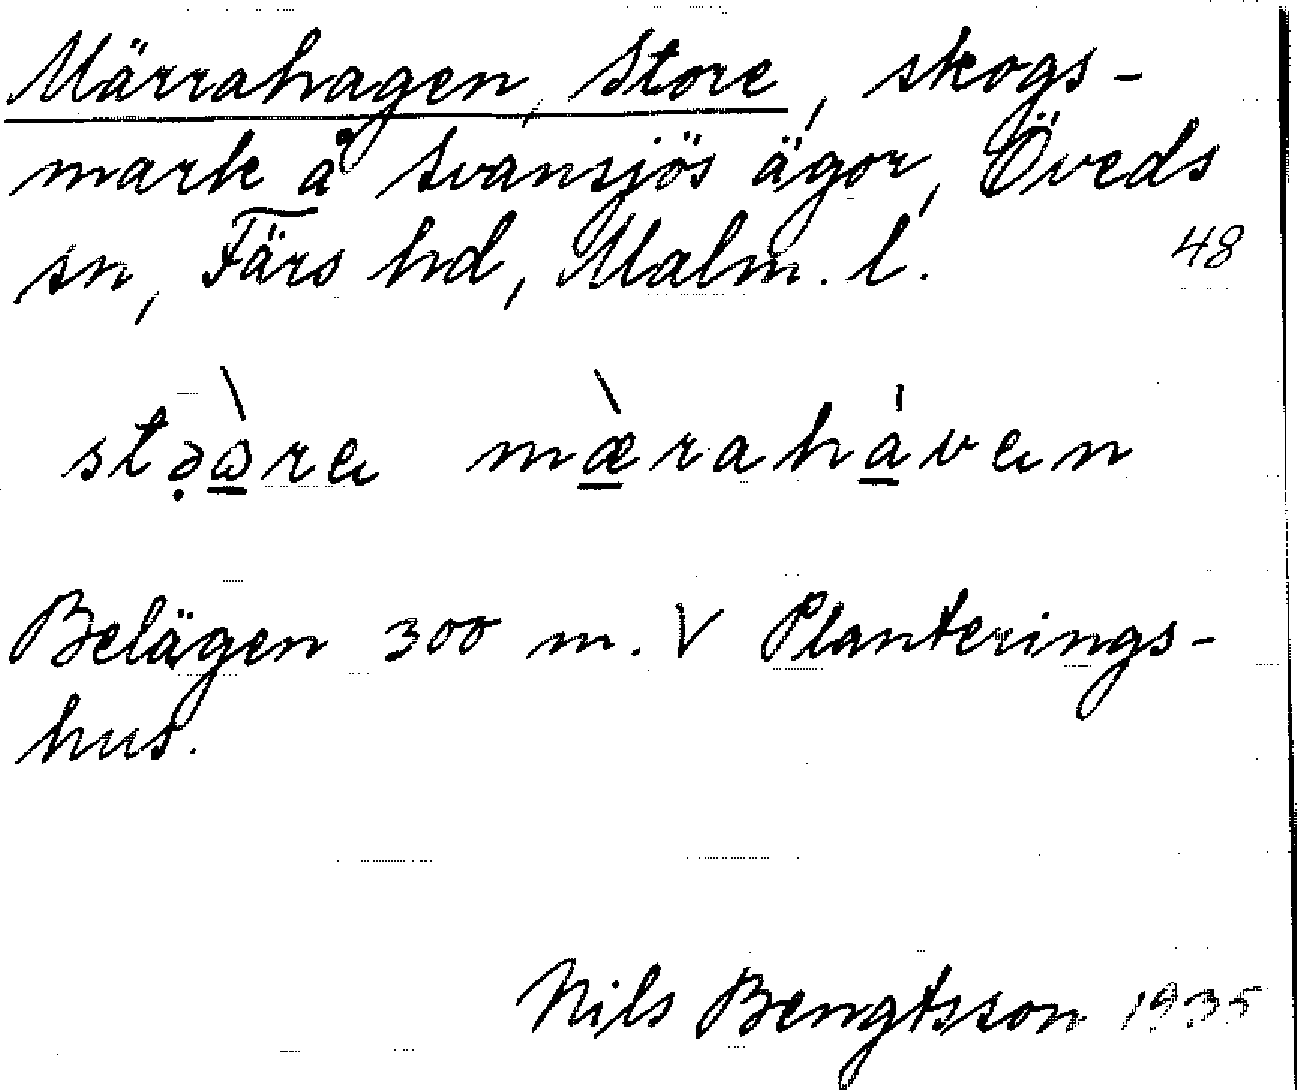 Märrahagen, Store, skogs-
mark å Svansjös ägor, Öveds
sn, Färs hd, Malm. l. 48
Belägen 300 m. V Planterings-
hus.
Nils Bengtsson 1935